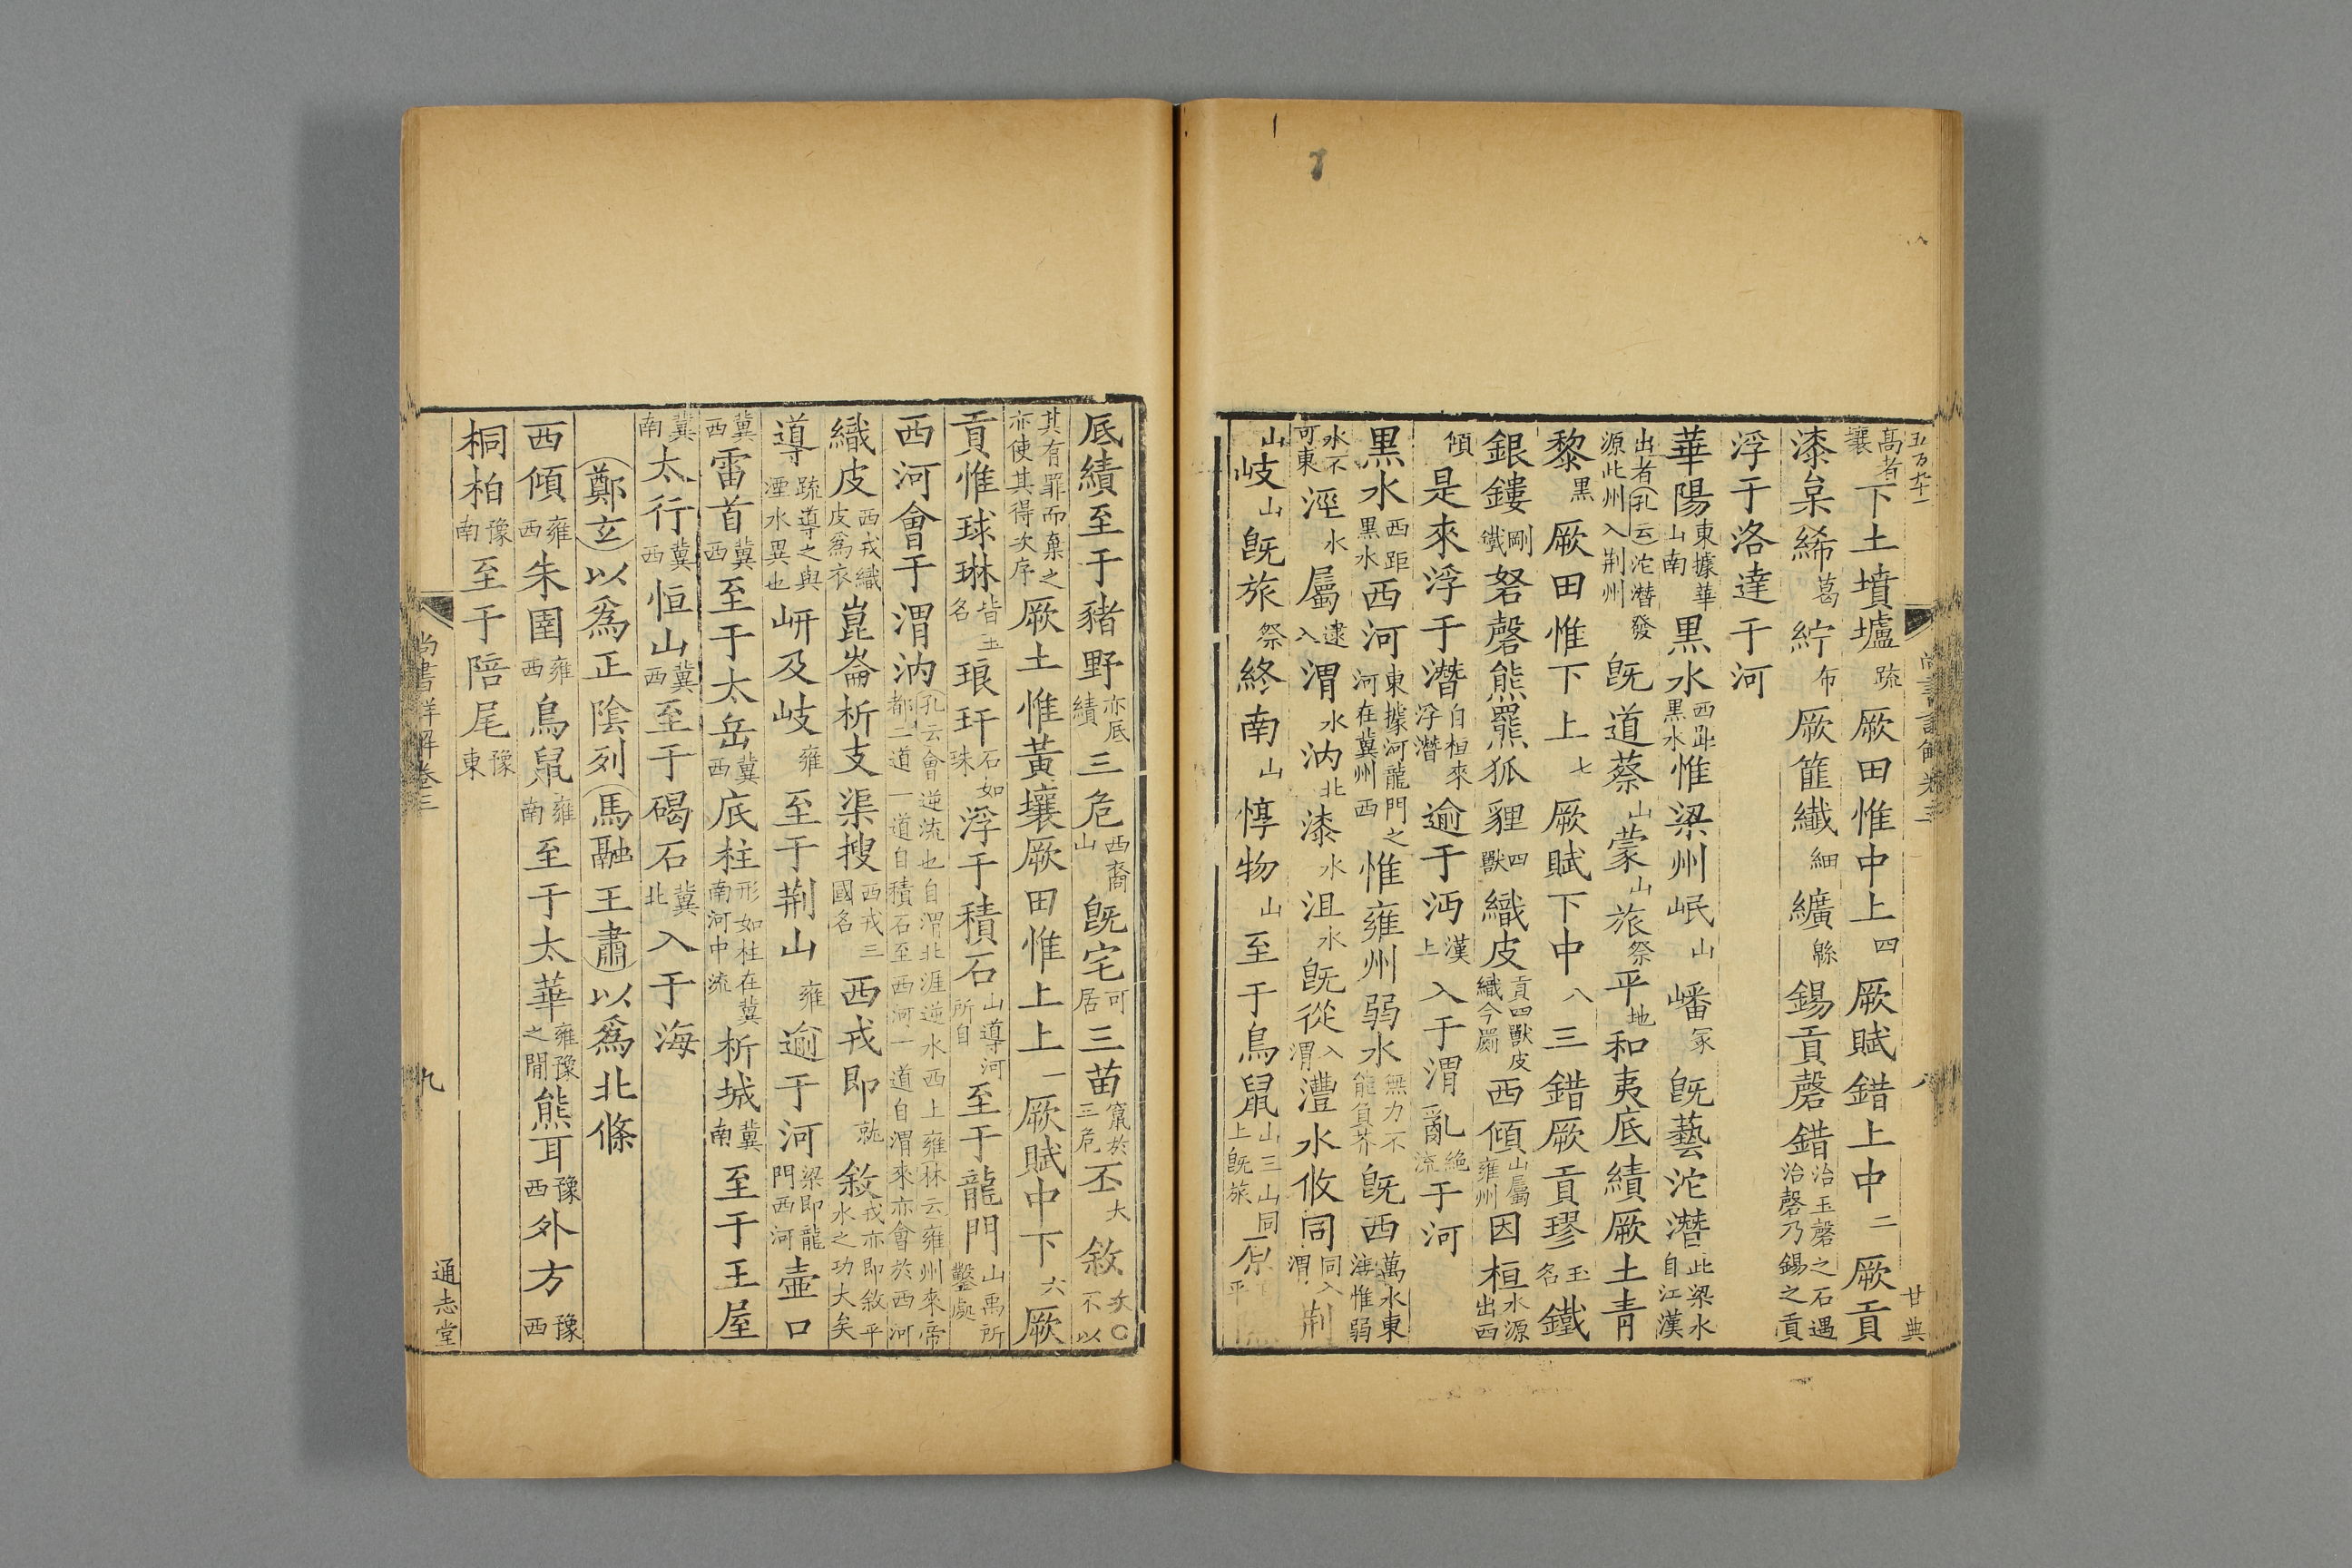 五万九十一
高者壤下土墳壚疏厥田惟中上四厥賦錯上中二厥貢
漆枲絺葛紵布厥篚纎細纊緜錫貢磬錯治玉磬之石遇治磬乃錫之貢
浮于洛達于河
華陽東據華山南黒水西距黒水惟梁州岷山嶓冢旣藝沱濳此梁水自江漢
出者孔云沱濳發源此州入荆州旣道蔡山蒙山旅祭平地和夷厎績厥土靑
黎黒厥田惟下上七厥賦下中八三錯厥貢璆玉名鐵
銀鏤剛鐵砮磬熊羆狐貍四獸織皮貢四獸皮織今罽西傾山屬雍州因桓水源出西
傾是來浮于濳自桓來浮濳逾于沔漢上入于渭亂絶流于河
黒水西距黒水西河東據河龍門之河在冀州西惟雍州弱水無力不能負芥旣西萬水東海惟弱
水不可東涇水屬逮入渭水汭北漆水沮水旣從入渭灃水攸同同入渭荆
山岐山旣旅祭終南山惇物山至于鳥鼠山三山同上旣旅原平
尚書詳解卷三
八
甘典
厎績至于豬野亦厎績三危西裔山旣宅可居三苗竄於三危丕大敘矣○不以
其有罪而棄之亦使其得次序厥土惟黃壤厥田惟上上一厥賦中下六厥
貢惟球琳皆玉名琅玕石如珠浮于積石山導河所自至于龍門山禹所鑿處
西河會于渭汭孔云會逆流也自渭北涯逆水西上雍林云雍州來帝都二道一道自積石至西河一道自渭來亦會於西河
織皮西戎織皮爲衣崑崙析支渠搜西戎三國名西戎即就敘戎亦即敘平水之功大矣
導疏導之與湮水異也岍及岐雍至于荆山雍逾于河梁即龍門西河壺口
冀西雷首冀西至于太岳冀西厎柱形如柱在冀南河中流析城冀南至于王屋
冀南太行冀西恒山冀西至于碣石冀北入于海
鄭玄以爲正陰列馬融王肅以爲北條
西傾雍西朱圉雍西鳥鼠雍南至于太華雍豫之閒熊耳豫西外方豫西
桐柏豫南至于陪尾豫東
尚書詳解卷三
九
通志堂